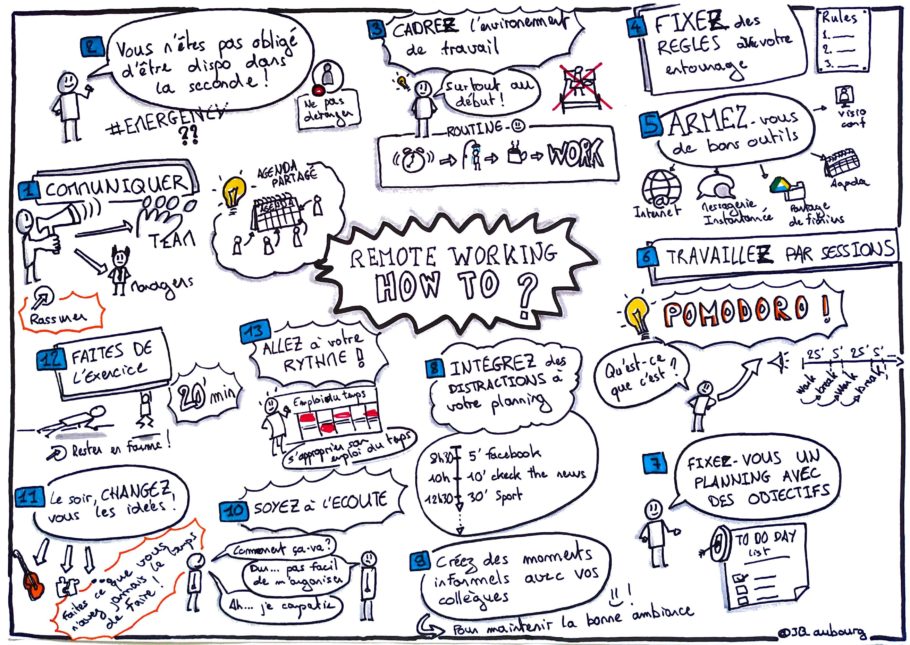 REMOTE WORKING
HOW TO ?
1 COMMUNIQUER
TEAM
Managers
Rassurer
AGENDA
PARTAGÉ
AGENDA
2
Vous n'êtes pas obligé
d'être dispo dans
la seconde !
#EMERGENCY
??
Ne pas
déranger
3 CADREZ l'environement
de travail
Surtout au
début !
ROUTINE
WORK
4 FIXEZ des
REGLES avec votre
entourage
Rules
1.
2.
3.
5 ARMEZ-vous
de bons outils
Visio
conf
Internet
Messagerie
Instantanée
Partage
de fichiers
Agenda
6 TRAVAILLEZ PAR SESSIONS
POMODORO !
Qu'est-ce
que c'est ?
25' 5' 25' 5'
work break work break
7
FIXEZ-VOUS UN
PLANNING AVEC
DES OBJECTIFS
TO DO DAY
list
8 INTÉGREZ des
DISTRACTIONS à
votre planning
8h30 5' facebook
10h 10' check the news
12h30 30' Sport
9
Créez des moments
informels avec vos
collègues
Pour maintenir la bonne ambiance
10 SOYEZ à L'ECOUTE
Comment ça-va ?
Bus... pas facil
de m'organiser
Ah... je compatie
11
Le soir, CHANGEZ
vous les idées !
Faites ce que vous
n'avez jamais le temps
de faire !
12 FAITES DE
L'Exercice
20 min
Rester en forme !
13
ALLEZ à votre
RYTHME !
Emploi du temps
s'approprier son
emploi du temps
©JB aubourg